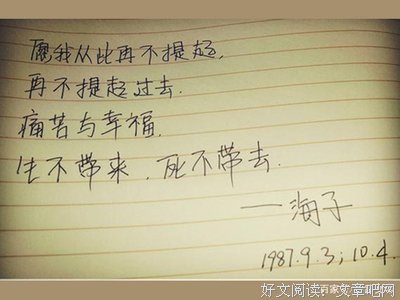 愿我从此再不提起,
再不提起过去.
痛苦与幸福.
生不带来.死不带去.
—海子
1987.9.3;10.4.
好文阅读:文章吧网